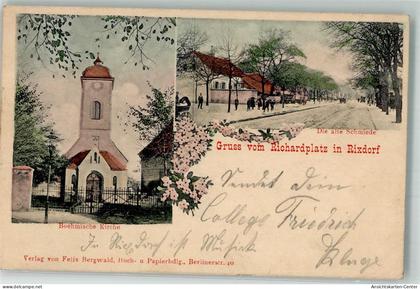 Die alte Schmiede
Gruss vom Richardplatz in Rixdorf
Boehmische Kirche
Sendet Dein
College Friedrich
In Rixdorf ist Musieke
Verlag von Felix Bergwald, Buch- u Papierhdlg., Berlinerstr. 40
www.ansichtskarten-center.de